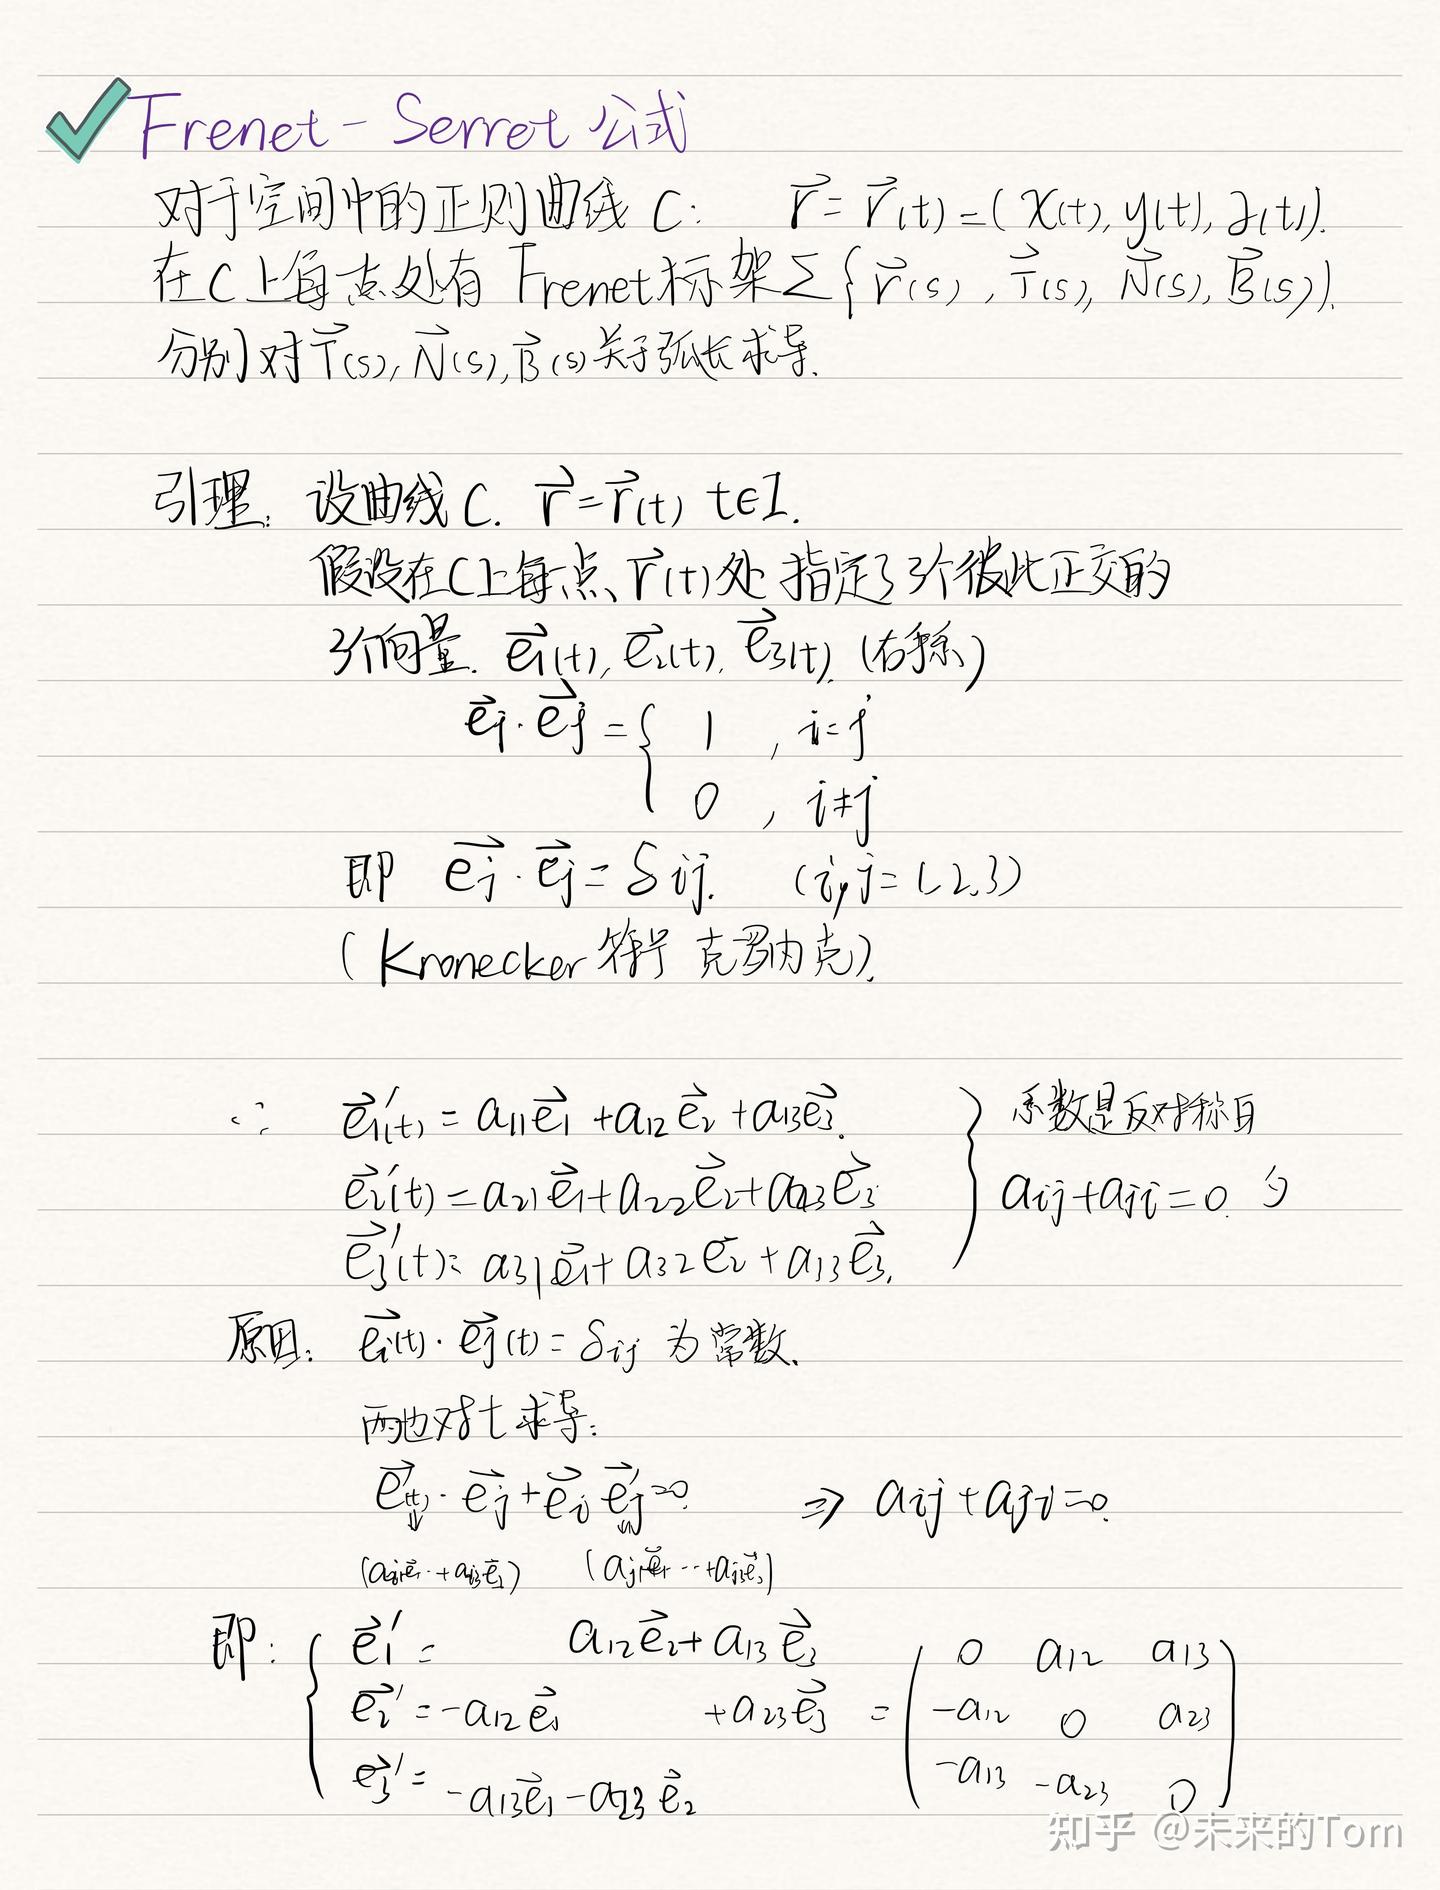 Frenet-Serret 公式
对于空间中的正则曲线 C: r⃗=r⃗(t)=(x(t),y(t),z(t)).
在C上每点处有 Frenet标架∑{r⃗(s),T⃗(s),N⃗(s),B⃗(s)}.
分别对T⃗(s),N⃗(s),B⃗(s)关于弧长求导.
引理: 设曲线C. r⃗=r⃗(t) t∈I.
假设在C上每点、r⃗(t)处 指定了3个彼此正交的
3个向量. e⃗1(t),e⃗2(t),e⃗3(t). (右手系)
e⃗i·e⃗j={ 1 , i=j
0 , i≠j
即 e⃗i·e⃗j=δij. (i,j=1,2,3)
(Kronecker 符号 克罗内克).
∴ e⃗1'(t)=a11e⃗1+a12e⃗2+a13e⃗3. } 系数是反对称的
e⃗2'(t)=a21e⃗1+a22e⃗2+a23e⃗3 aij+aji=0.
e⃗3'(t)=a31e⃗1+a32e⃗2+a13e⃗3.
原因: e⃗i(t)·e⃗j(t)=δij 为常数.
两边对t求导:
e⃗i'(t)·e⃗j+e⃗i e⃗j'=0. ⇒ aij+aji=0.
(ai1e⃗1··+ai3e⃗3) (aj1e⃗1···+aj3e⃗3)
即: { e⃗1'= a12e⃗2+a13e⃗3 ( 0 a12 a13 )
e⃗2'=-a12e⃗1 +a23e⃗3 = -a12 0 a23
e⃗3'= -a13e⃗1-a23e⃗2 -a13 -a23 0
知乎 @未来的Tom